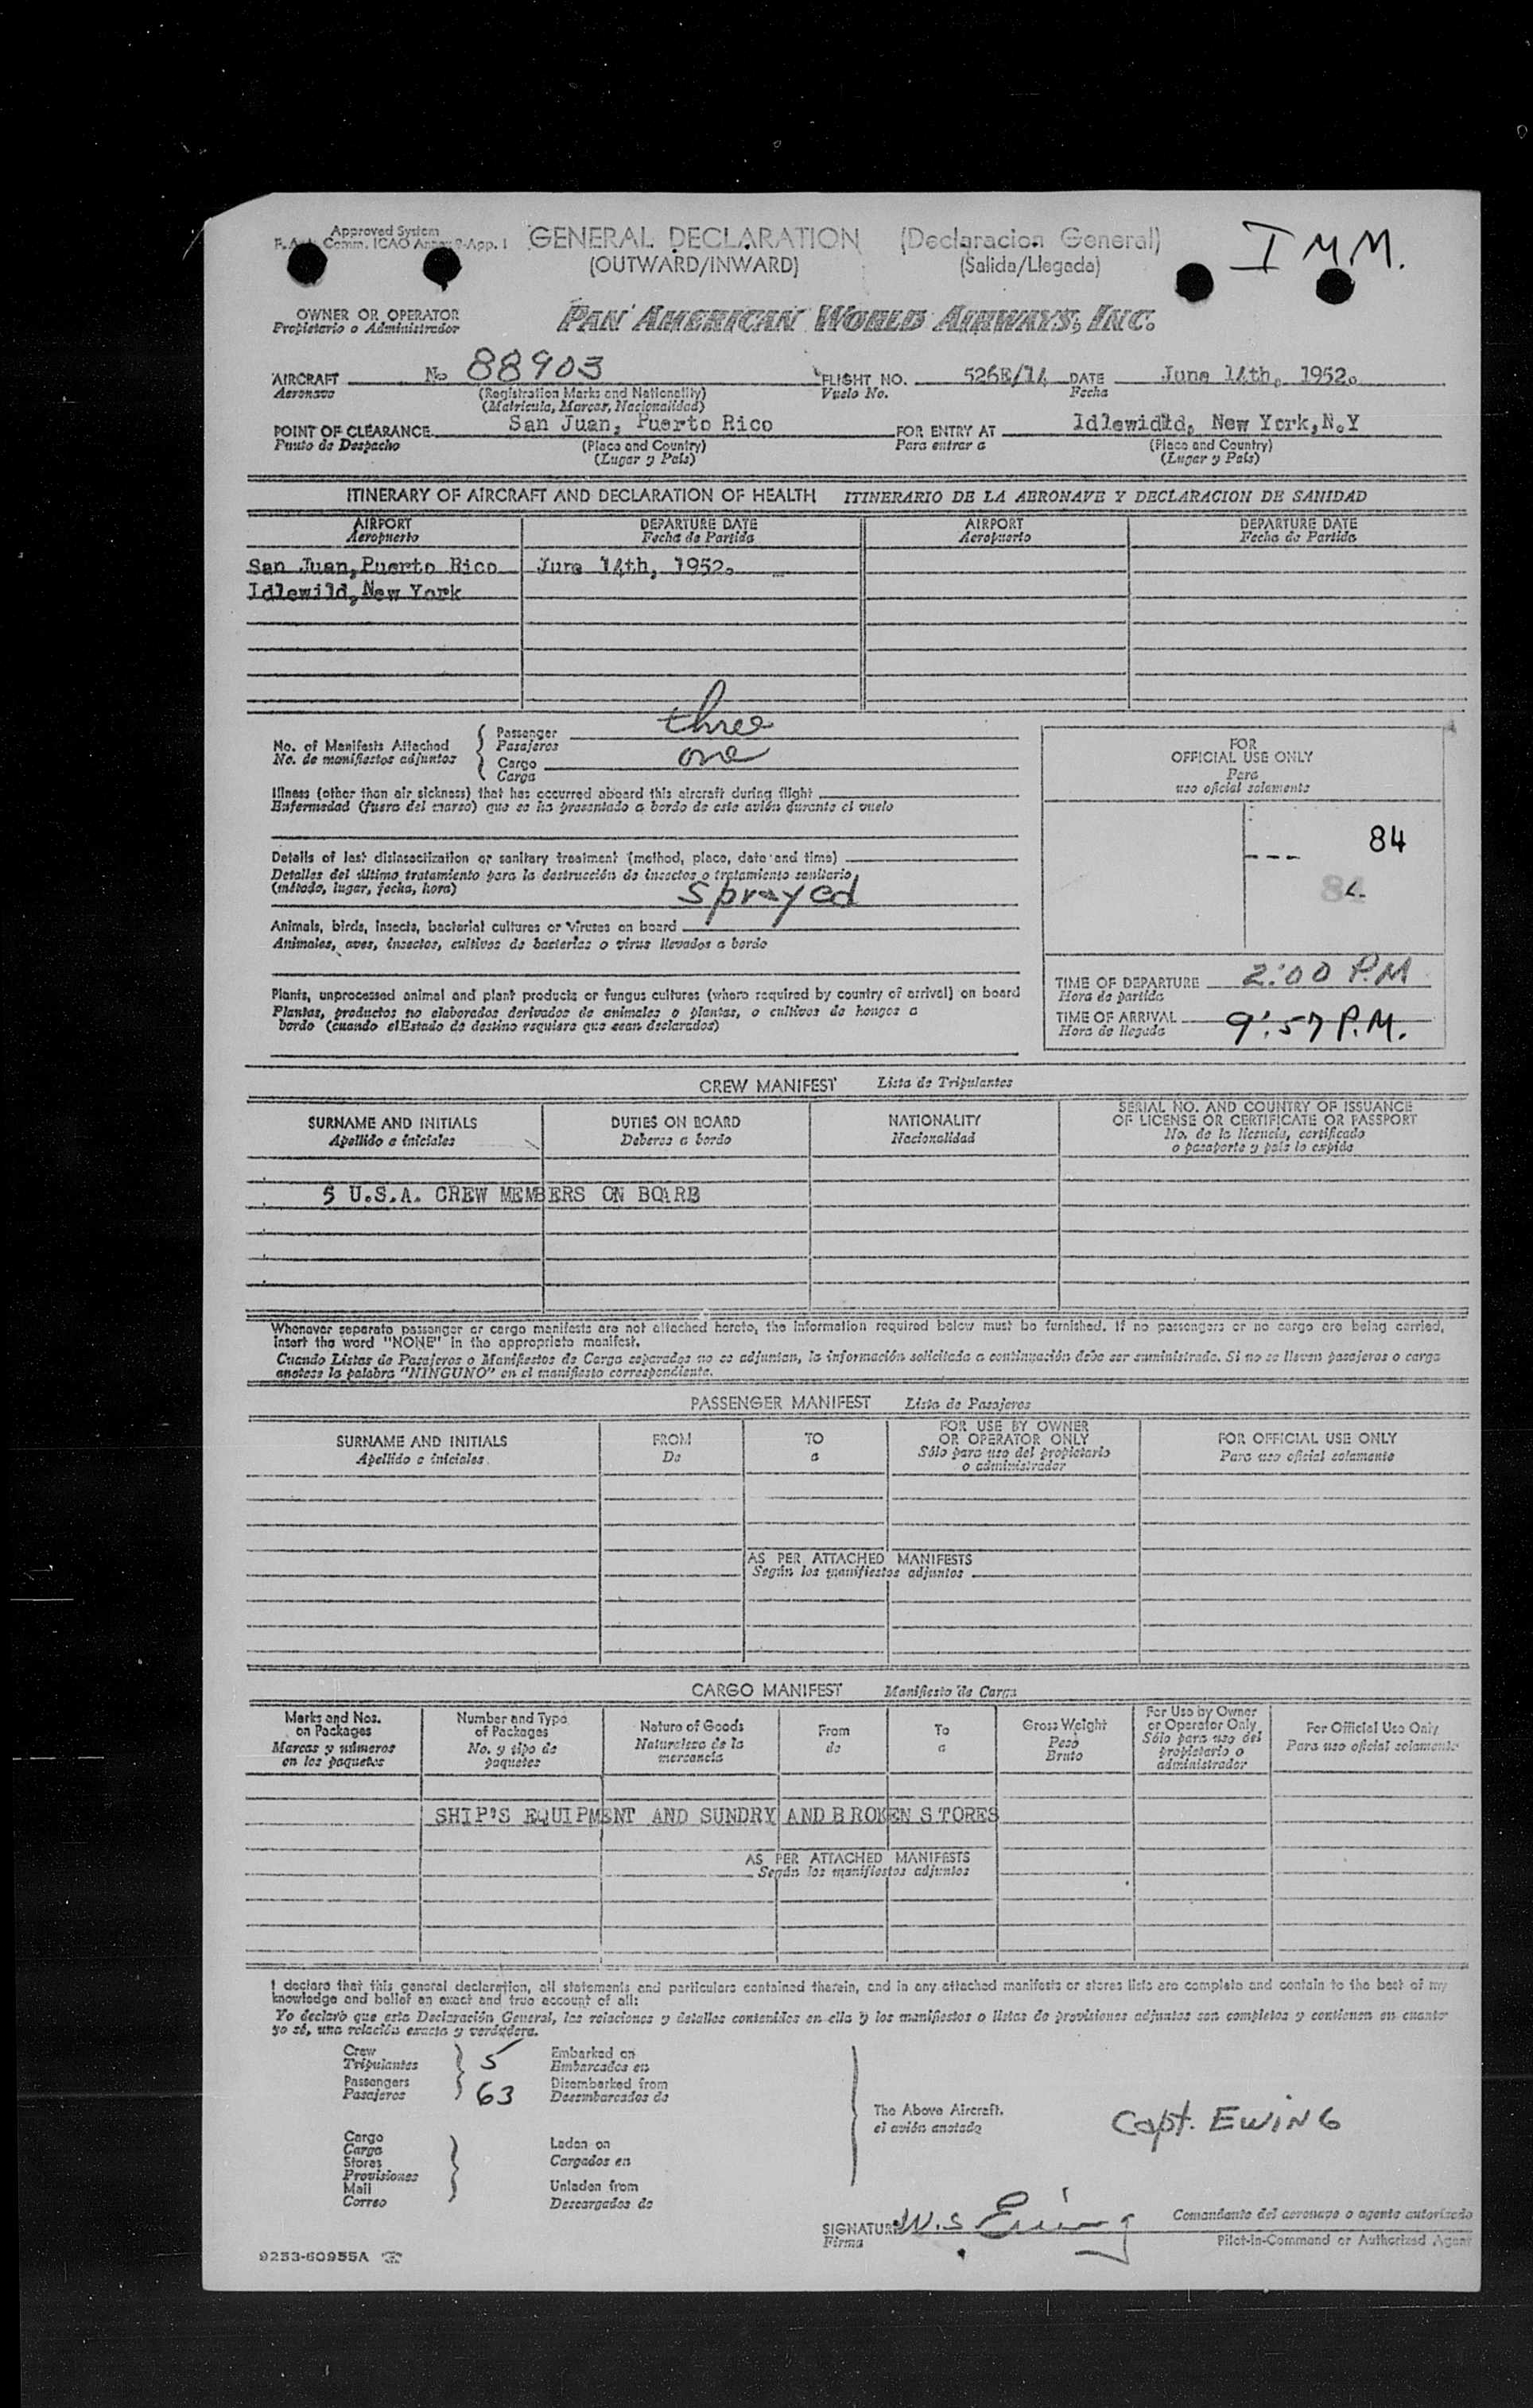 Approved System
Comm. ICAO Annex 9-App. 1
GENERAL DECLARATION (Declaracion General)
(OUTWARD/INWARD) (Salida/Llegada)
I M M.
OWNER OR OPERATOR
Propietario o Administrador
PAN AMERICAN WORLD AIRWAYS, INC.
AIRCRAFT No 88903 FLIGHT NO. 526E/14 DATE June 14th, 1952.
Aeronave (Registration Marks and Nationality) Vuelo No. Fecha
(Matricula, Marcas, Nacionalidad)
POINT OF CLEARANCE San Juan, Puerto Rico FOR ENTRY AT New York, N.Y
Punto de Despacho (Place and Country) Para entrar a (Place and Country)
(Lugar y País) (Lugar y País)
ITINERARY OF AIRCRAFT AND DECLARATION OF HEALTH ITINERARIO DE LA AERONAVE Y DECLARACION DE SANIDAD
AIRPORT DEPARTURE DATE AIRPORT DEPARTURE DATE
Aeropuerto Fecha de Partida Aeropuerto Fecha de Partida
San Juan, Puerto Rico June 14th, 1952.
Idlewild, New York
No. of Manifests Attached Passenger three
No. de manifiestos adjuntos Pasajeros
Cargo one
Carga
FOR
OFFICIAL USE ONLY
Para
uso oficial solamente
Illness (other than air sickness) that has occurred aboard this aircraft during flight
Enfermedad (fuera del mareo) que se ha presentado a bordo de este avión durante el vuelo
84
84
Details of last disinsectization or sanitary treatment (method, place, date and time)
Detalles del último tratamiento para la destrucción de insectos o tratamiento sanitario
(método, lugar, fecha, hora)
Sprayed
Animals, birds, insects, bacterial cultures or Viruses on board
Animales, aves, insectos, cultivos de bacterias o virus llevados a bordo
Plants, unprocessed animal and plant products or fungus cultures (where required by country of arrival) on board
Plantas, productos no elaborados derivados de animales o plantas, o cultivos de hongos a
bordo (cuando el Estado de destino requiere que sean declarados)
TIME OF DEPARTURE 2:00 P.M
Hora de partida
TIME OF ARRIVAL 9:57 P.M.
Hora de llegada
CREW MANIFEST Lista de Tripulantes
SURNAME AND INITIALS DUTIES ON BOARD NATIONALITY SERIAL NO. AND COUNTRY OF ISSUANCE
Apellido e iniciales Deberes a bordo Nacionalidad OF LICENSE OR CERTIFICATE OR PASSPORT
No. de la licencia, certificado
o pasaporte y país lo expide
5 U.S.A. CREW MEMBERS ON BOARD
Whenever separate passenger or cargo manifests are not attached hereto, the information required below must be furnished. If no passengers or no cargo are being carried,
insert the word "NONE" in the appropriate manifest.
Cuando Listas de Pasajeros o Manifiestos de Carga separados no se adjuntan, la información solicitada a continuación debe ser suministrada. Si no se lleven pasajeros o carga
anotese la palabra "NINGUNO" en el manifiesto correspondiente.
PASSENGER MANIFEST Lista de Pasajeros
SURNAME AND INITIALS FROM TO FOR USE BY OWNER FOR OFFICIAL USE ONLY
Apellido e iniciales De a OR OPERATOR ONLY Para uso oficial solamente
Sólo para uso del propietario
o administrador
AS PER ATTACHED MANIFESTS
Según los manifiestos adjuntos
CARGO MANIFEST Manifiesto de Carga
Marks and Nos. on Packages
Marcas y números en los paquetes
Number and Type of Packages
No. y tipo de paquetes
Nature of Goods
Naturaleza de la mercancia
From
de
To
a
Gross Weight
Peso Bruto
For Use by Owner or Operator Only
Sólo para uso del propietario o administrador
For Official Use Only
Para uso oficial solamente
SHIP'S EQUIPMENT AND SUNDRY AND BROKEN STORES
AS PER ATTACHED MANIFESTS
Según los manifiestos adjuntos
I declare that this general declaration, all statements and particulars contained therein, and in any attached manifests or stores lists are complete and contain to the best of my
knowledge and belief an exact and true account of all:
Yo declaro que esta Declaración General, las relaciones y detalles contenidos en ella y los manifiestos o listas de provisiones adjuntos son completos y contienen en cuanto
yo sé, una relación exacta y verdadera.
Crew 5 Embarked on
Tripulantes Embarcados en
Passengers 63 Disembarked from
Pasajeros Desembarcados de
The Above Aircraft.
el avión anotado
Capt. EWING
Cargo Laden on
Carga
Stores Cargados en
Provisiones
Mail Unladen from
Correo Descargados de
SIGNATURE W.S Ewing Comandante del aeronave o agente autorizado
Firma Pilot-in-Command or Authorized Agent
9253-60955A